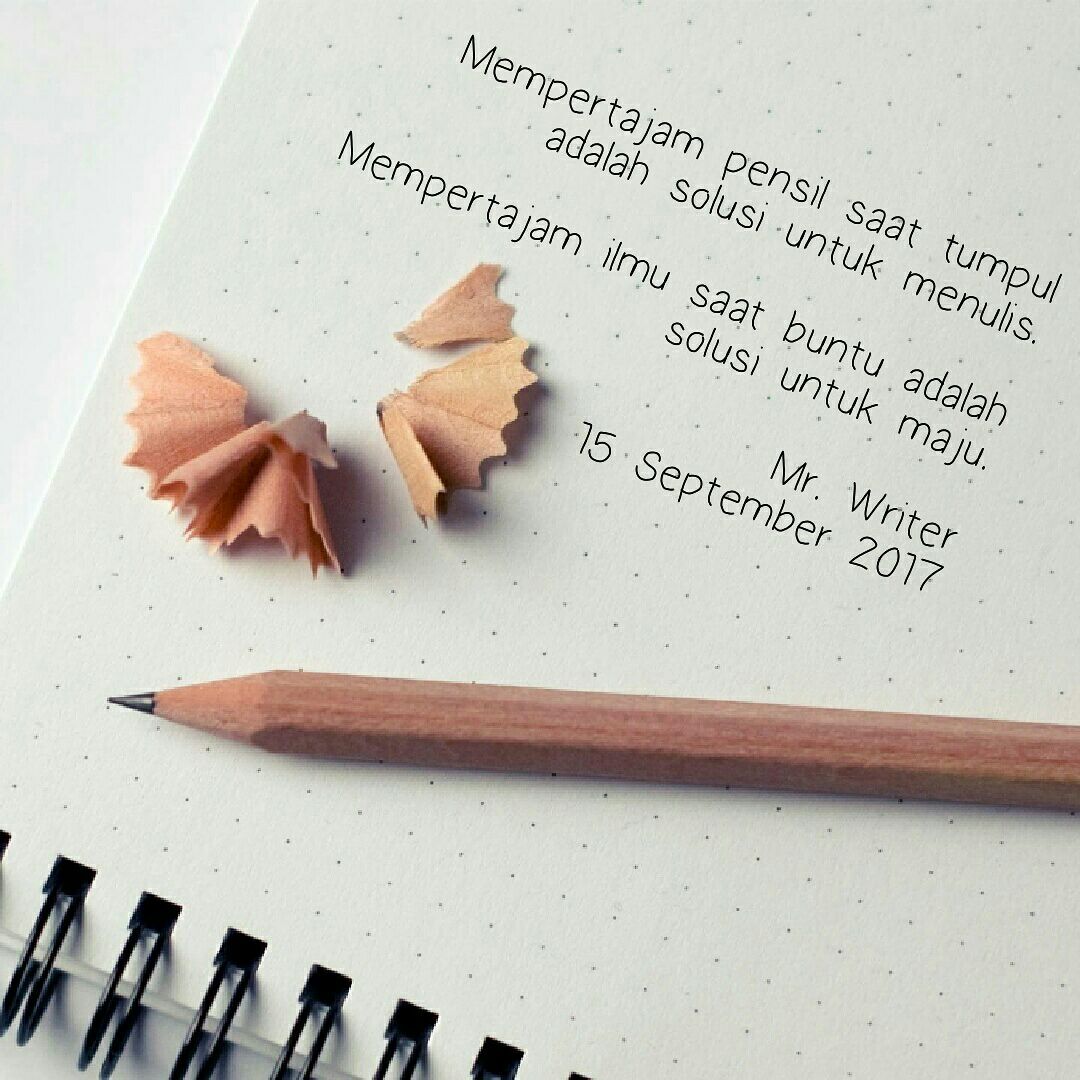 Mempertajam pensil saat tumpul
adalah solusi untuk menulis.
Mempertajam ilmu saat buntu adalah
solusi untuk maju.
Mr. Writer
15 September 2017